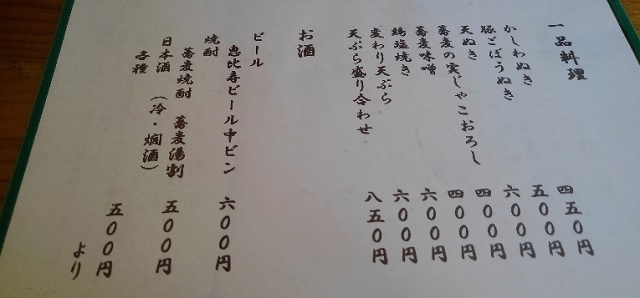 一品料理
かしわぬき 四五〇円
豚ごぼうぬき 五〇〇円
天ぬき 六〇〇円
蕎麦の実じゃこおろし 四〇〇円
蕎麦味噌 四〇〇円
鶏塩焼き 六〇〇円
変わり天ぷら 六〇〇円
天ぷら盛り合わせ 八五〇円
お酒
ビール
恵比寿ビール中ビン 六〇〇円
焼酎
蕎麦焼酎 蕎麦湯割 五〇〇円
日本酒 (冷・燗酒)
各種 五〇〇円
より